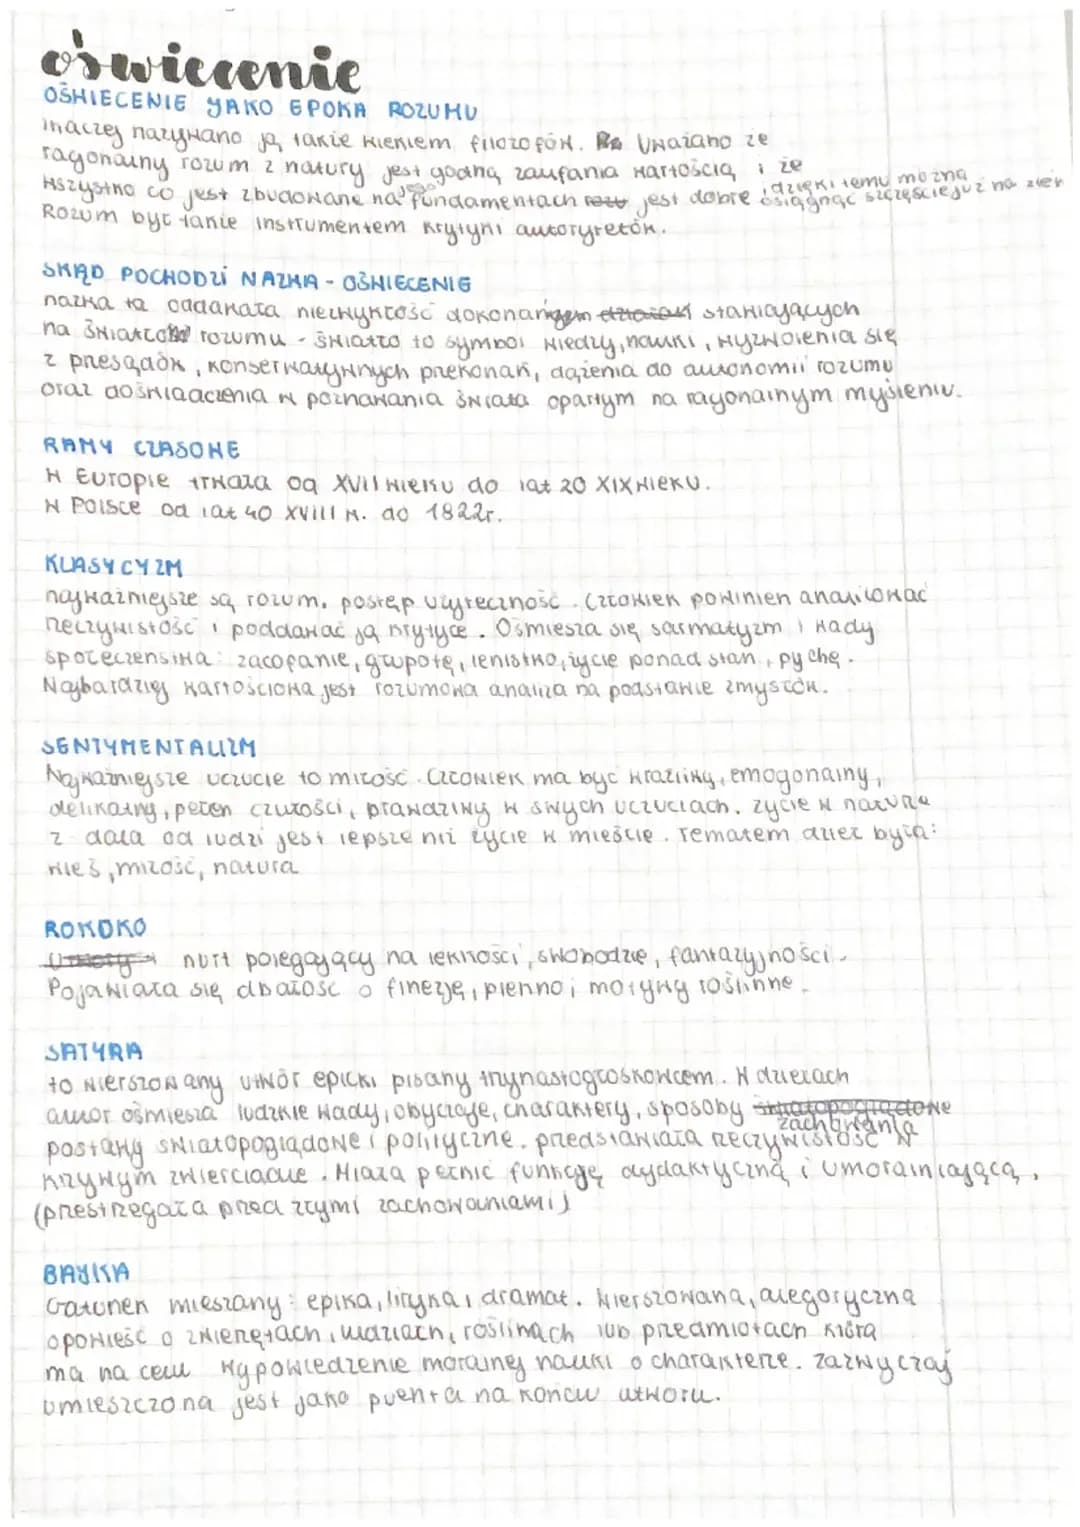 oświecenie
OŚWIECENIE JAKO EPOKA ROZUMU
Inaczej nazywano ją także wiekiem filozofów. Uważano że
racjonalny rozum z natury jest godną zaufania wartością i że
wszystko co jest zbudowane na jego fundamentach jest dobre, dzięki temu można osiągnąć szczęście już na ziemi
Rozum był także instrumentem krytyki autorytetów.
SKĄD POCHODZI NAZWA - OŚWIECENIE
nazwa ta oddawała niezwykłość dokonań stawiających
na światło rozumu - światło to symbol wiedzy, nauki, wyzwolenia się
z przesądów, konserwatywnych przekonań, dążenia do autonomii rozumu
oraz doświadczenia w poznawania świata opartym na racjonalnym myśleniu.
RAMY CZASOWE
W Europie trwała od XVII wieku do lat 20 XIX wieku.
W Polsce od lat 40 XVIII w. do 1822r.
KLASYCYZM
najważniejsze są rozum, postęp użyteczność. Człowiek powinien analizować
rzeczywistość i poddawać ją krytyce. Ośmiesza się sarmatyzm i wady
społeczeństwa: zacofanie, głupotę, lenistwo, życie ponad stan, pychę.
Najbardziej wartościowa jest rozumowa analiza na podstawie zmysłów.
SENTYMENTALIZM
Najważniejsze uczucie to miłość. Człowiek ma być wrażliwy, emocjonalny,
delikatny, pełen czułości, prawdziwy w swych uczuciach. życie w naturze
z dala od ludzi jest lepsze niż życie w mieście. Tematem dzieł była:
wieś, miłość, natura
ROKOKO
nurt polegający na lekkości, swobodzie, fantazyjności.
Pojawiała się dbałość o finezję, piękno i motywy roślinne.
SATYRA
to wierszowany utwór epicki pisany trzynastozgłoskowcem. W dziełach
autor ośmiesza ludzkie wady, obyczaje, charaktery, sposoby zachowania
postawy światopoglądowe i polityczne. przedstawiała rzeczywistość w
krzywym zwierciadle. Miała pełnić funkcję dydaktyczną i umoralniającą.
(przestrzegała przed złymi zachowaniami)
BAJKA
Gatunek mieszany: epika, liryka i dramat. Wierszowana, alegoryczna
opowieść o zwierzętach, ludziach, roślinach lub przedmiotach która
ma na celu wypowiedzenie moralnej nauki o charakterze. zazwyczaj
umieszczona jest jako puenta na końcu utworu.